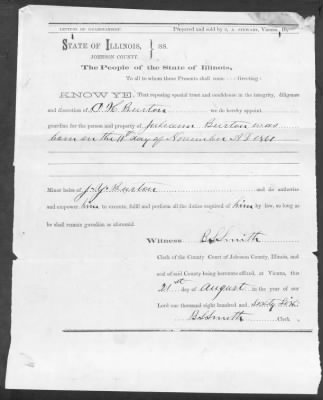 LETTERS OF GUARDIANSHIP. Prepared and sold by
STATE OF ILLINOIS, SS.
JOHNSON COUNTY.
The People of the State of Illinois,
To all to whom these Presents shall come . . . Greeting:
KNOW YE, That reposing special trust and confidence in the integrity, diligence
and discretion of Burton we do hereby appoint
guardian for the person and property of Burton was
born on the day of November A D 1861
Minor heirs of J. Y. Burton and do authorize
and empower him to execute, fulfill and perform all the duties required of him by law, so long as
he shall remain guardian as aforesaid.
Witness B L Smith
Clerk of the County Court of Johnson County, Illinois, and
seal of said County being hereunto affixed, at Vienna, this
21st day of August in the year of our
Lord one thousand eight hundred and sixty
B L Smith Clerk